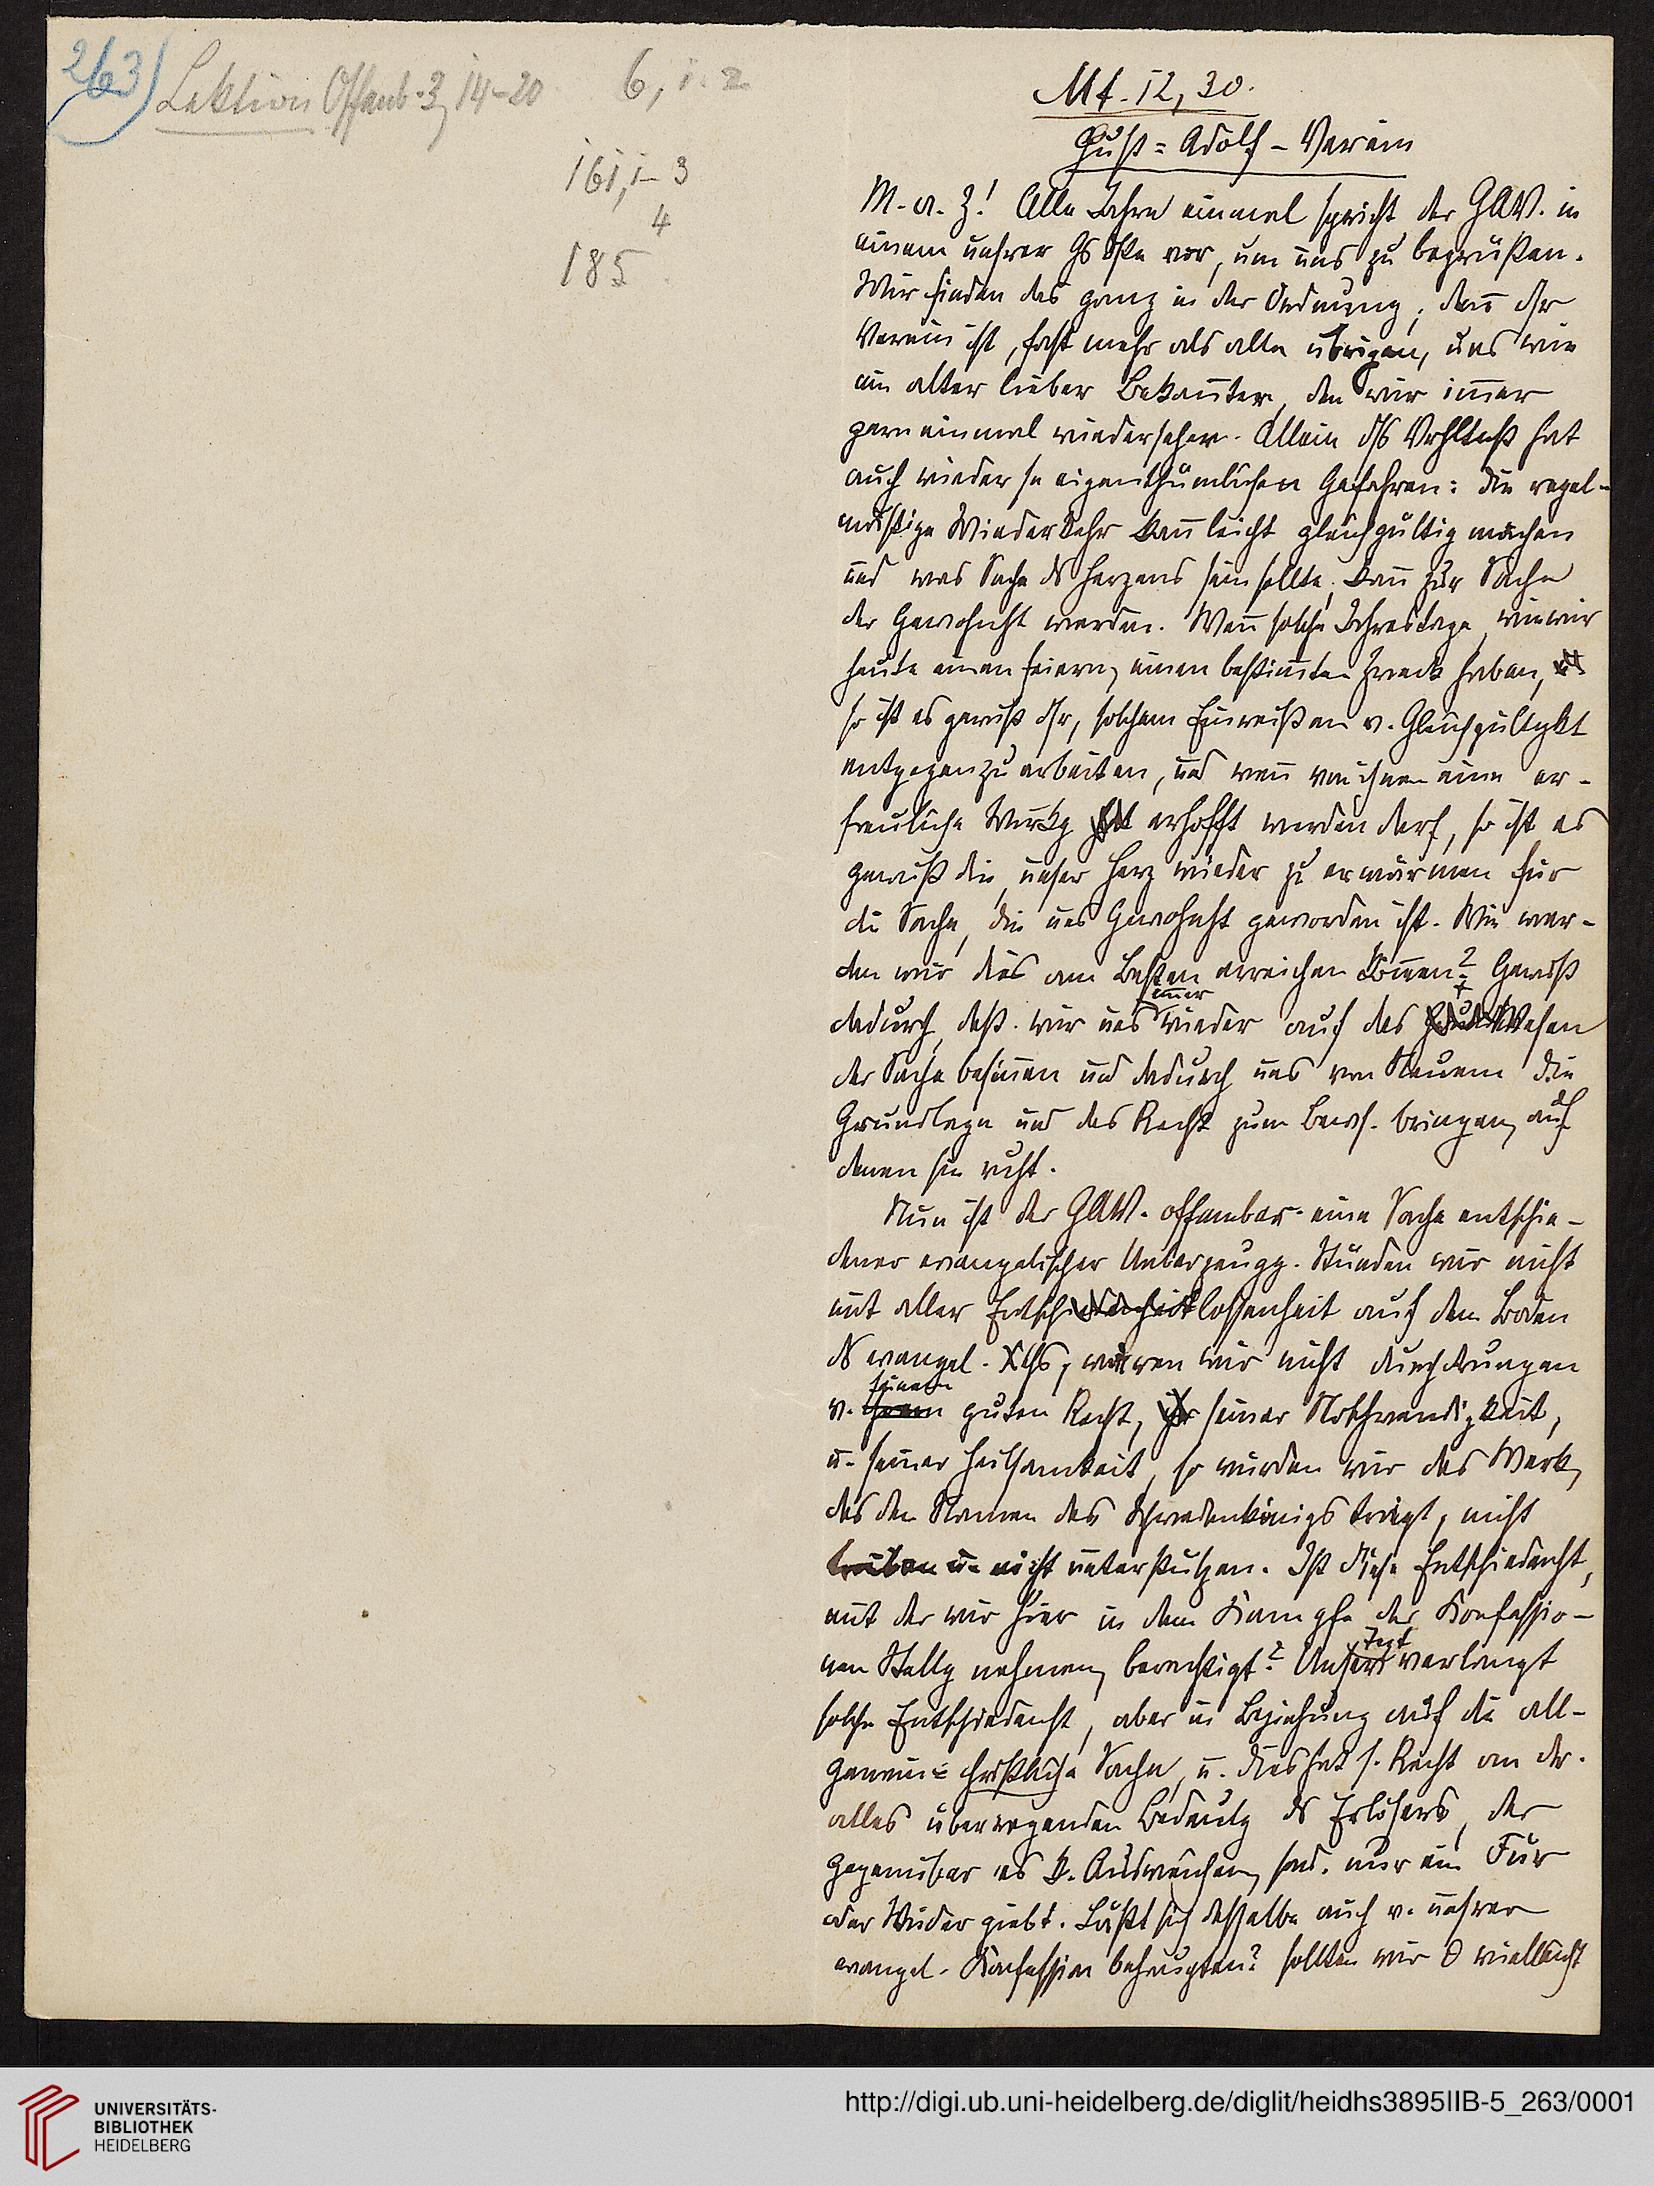 263)
Lektion Offenb. 3, 14-20 6, 1. 2
161, 1-3
4
185
Mt. 12, 30.
Gust=Adolf-Verein
M. a. Z! Alle Jahre einmal spricht der GAV. in
einem unsrer Gs vor, um uns zu begrüßen.
Wir finden das ganz in der Ordnung; denn dsr
Verein ist, fast mehr als alle übrigen, uns wie
ein alter lieber Bekannter, den wir immer
gern einmal wiedersehen. Allein dss Vrhltniß hat
auch wieder se eigenthümlichen Gefahren: die regel-
mäßige Wiederkehr kann leicht gleichgültig machen
und was Sache ds Herzens sein sollte, kann zur Sache
der Gewohnht werden. Wenn solche Jahrestage, wie wir
heute einen feiern, einen bestimmten Zweck haben,
so ist es gewiß dsr, solchem Einreißen v. Gleichgültgkt
entgegenzuarbeiten, und wenn von ihnen eine er-
freuliche Wirkg erhofft werden darf, so ist es
gewiß die, unser Herz wieder zu erwärmen für
die Sache, die uns Gewohnht geworden ist. Wie wer-
den wir dies am Besten erreichen können? Gewiß
dadurch, daß wir uns immer wieder auf das Wesen
der Sache besinnen und dadurch uns von Neuem die
Grundlage und das Recht zum Bews. bringen, auf
denen sie ruht.
Nun ist der GAV. offenbar eine Sache entschie-
dener evangelischer Ueberzeugg. Stünden wir nicht
mit aller Entschlossenheit auf dem Boden
ds evangel. Xths, wären wir nicht durchdrungen
v. seinem guten Recht, seiner Nothwendigkeit,
u. seiner Heilsamkeit, so würden wir das Werk,
das den Namen des Schwedenkönigs trägt, nicht
treiben u. nicht unterstützen. Ist diese Entschiedenht,
mit der wir hier in dem Kampfe der Konfessio-
nen Stellg nehmen, berechtigt? Unser Text verlangt
solche Entschiedenht, aber in Beziehung auf die all-
gemein=christliche Sache, u. dies hat s. Recht an dr.
alles überwiegenden Bedeutg ds Erlösers, dem
gegenüber es k. Ausweichen, sond. nur ein Für
oder Wider giebt. Läßt sich dasselbe auch v. unsrer
evangel. Konfession behaupten? sollten wir vielleicht
UNIVERSITÄTS-
BIBLIOTHEK
HEIDELBERG
http://digi.ub.uni-heidelberg.de/diglit/heidhs3895IIB-5_263/0001